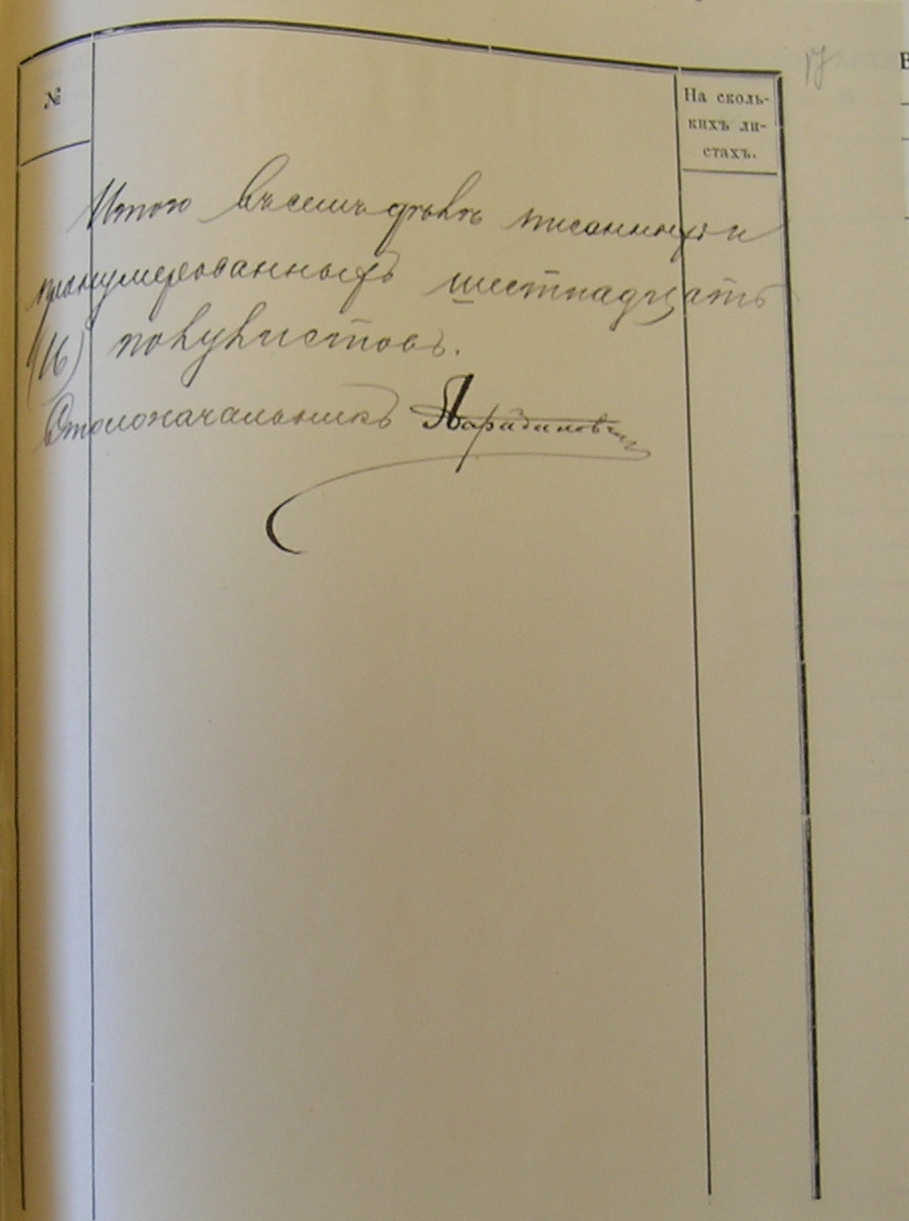 №
На сколь-
кихъ ли-
стахъ.
17
Итого въ семъ дѣлѣ писанныхъ и
пронумерованныхъ шестнадцать
(16) полулистовъ.
Столоначальникъ